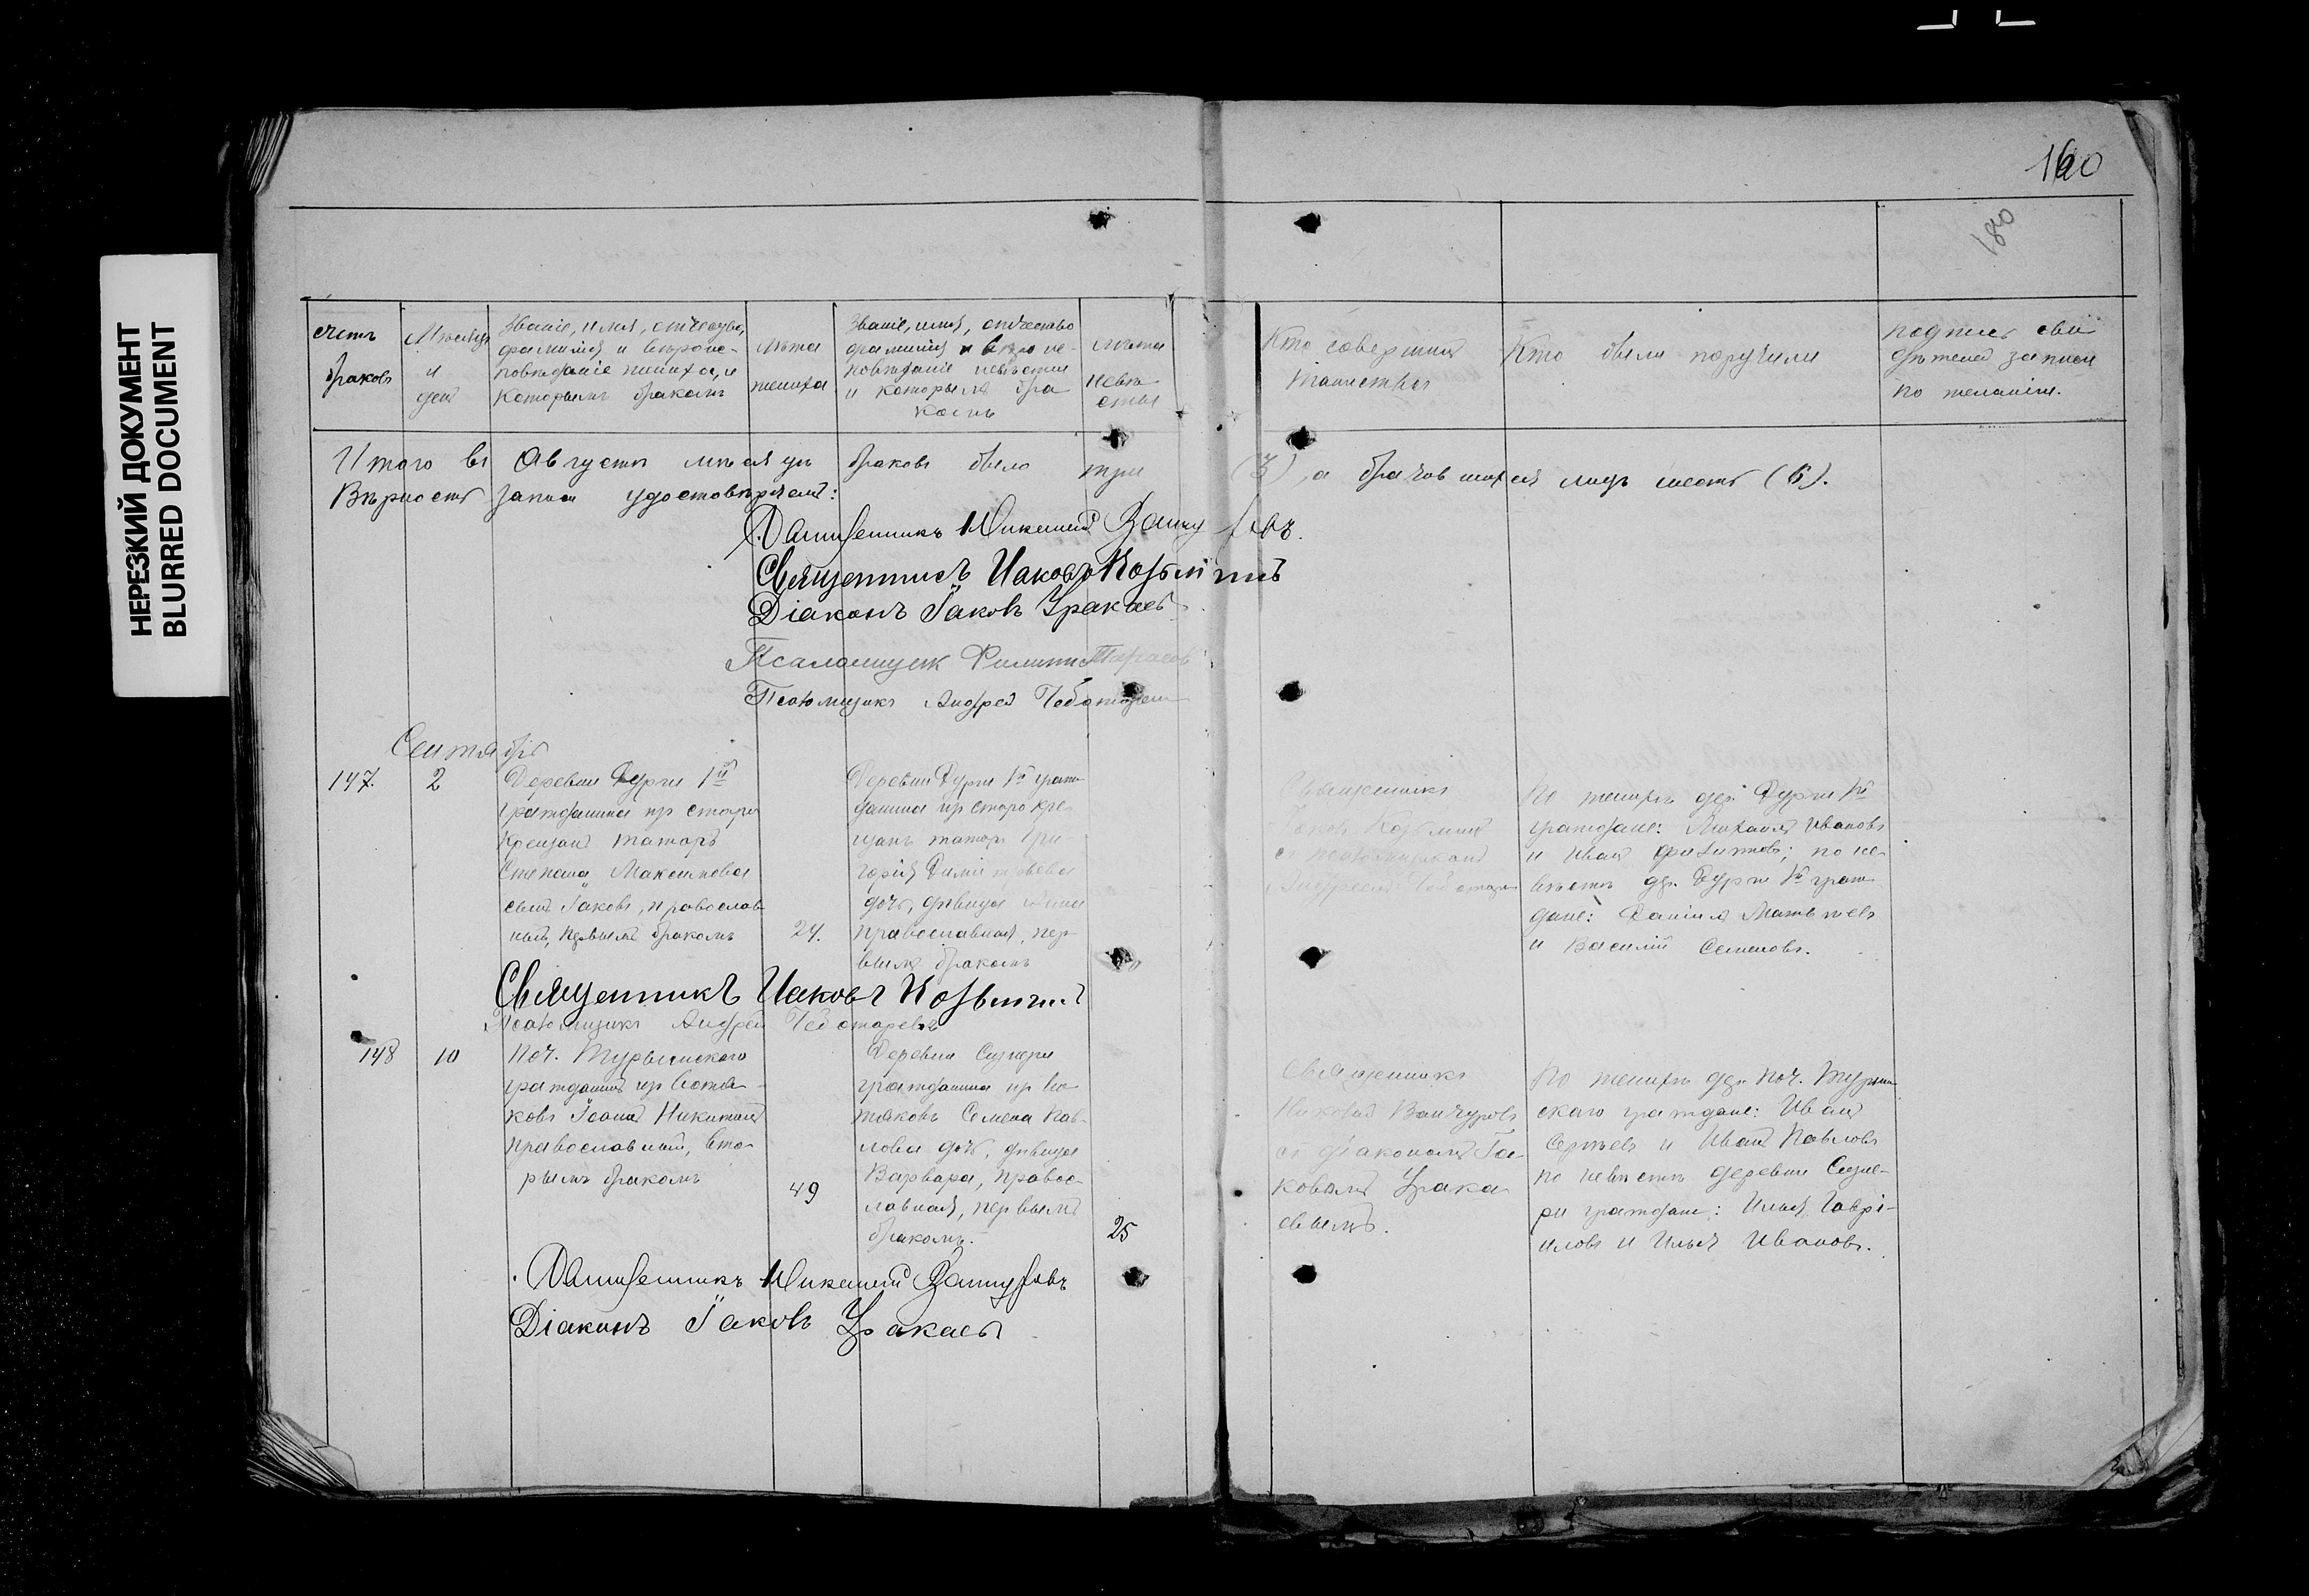 НЕРЕЗКИЙ ДОКУМЕНТ
BLURRED DOCUMENT
160
180
счетъ
браковъ
Мѣсяцъ
и
день
Званіе, имя, отчество,
фамилія и вѣроис-
повѣданіе жениха, и
которымъ бракомъ
Лѣта
жениха
Званіе, имя, отчество
фамилія и вѣроис-
повѣданіе невѣсты
и которымъ бра
комъ
Лѣта
невѣ
сты
Кто совершилъ
таинство
Кто были поручители
подпись сви
дѣтелей записи
по желанію.
Итого въ Августѣ мѣсяцѣ браковъ было три (3), а брачившихся лицъ шесть (6).
Вѣрность записи удостовѣряемъ:
Священникъ Николай Ванчуровъ.
Священникъ Иаковъ Козьминъ
Діаконъ Іаковъ Уракаевъ
Псаломщик Филиппъ Тарасов
Псаломщикъ Андрей Чеботарев
Сентябрь
147.
2
Деревни Дурги 1й
гражданина изъ старо
крещенъ татаръ
Степана Максимова
сынъ Іаковъ, православ
ный, первымъ бракомъ
24.
Деревни Дурги 1й граж
данина изъ старокре-
щенъ татаръ Гри-
горія Димитріева
дочь, дѣвица Анна
православная, пер-
вымъ бракомъ
Священникъ
Іаковъ Козьминъ
съ псаломщикомъ
Андреемъ Чеботарев
По женихѣ дер. Дурги 1й
граждане: Михаилъ Ивановъ
и Иванъ Филиповъ; по не-
вѣстѣ дер. Дурги 1й граж
дане: Даніилъ Матвѣевъ
и Василій Семеновъ.
Священникъ Иаковъ Козьминъ
Псаломщикъ Андрей Чеботаревъ
148
10
Поч. Турынскаго
гражданинъ изъ Вотя-
ковъ Іоаннъ Никитинъ
православный, вто-
рымъ бракомъ
49
Деревни Сизнери
гражданина изъ Во
тяковъ Семена Пав-
лова дочь, дѣвица
Варвара, правос-
лавная, первымъ
бракомъ.
25
Священникъ
Николай Ванчуровъ
съ діакономъ Іа-
ковомъ Урака
евымъ.
По женихѣ дер. Поч. Турын
скаго граждане: Иванъ
Сергѣевъ и Иванъ Павловъ
по невѣстѣ деревни Сизне-
ри граждане: Илья Гаврі-
иловъ и Илья Ивановъ.
Священникъ Николай Ванчуровъ
Діаконъ Іаковъ Уракаевъ